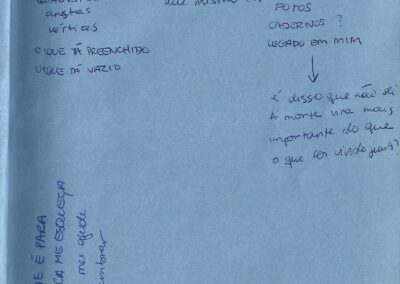 arestas
vértices
O QUE TÁ PREENCHIDO
O QUE TÁ VAZIO
que mesmo
FOTOS
CADERNOS ?
LEGADO EM MIM
é disso que não sei
A morte vira mais
importante do que
o que foi vivido junto?
E É PARA
ME ESQUEÇA
me ajude